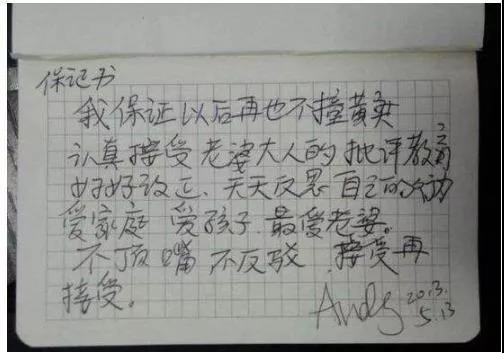 保证书
我保证以后再也不撞黄奕
认真接受老婆大人的批评教育
好好改正、天天反思自己的
爱家庭 爱孩子.最爱老婆。
不顶嘴 不反驳.接受再
接受。
Andy 2013.
5.13